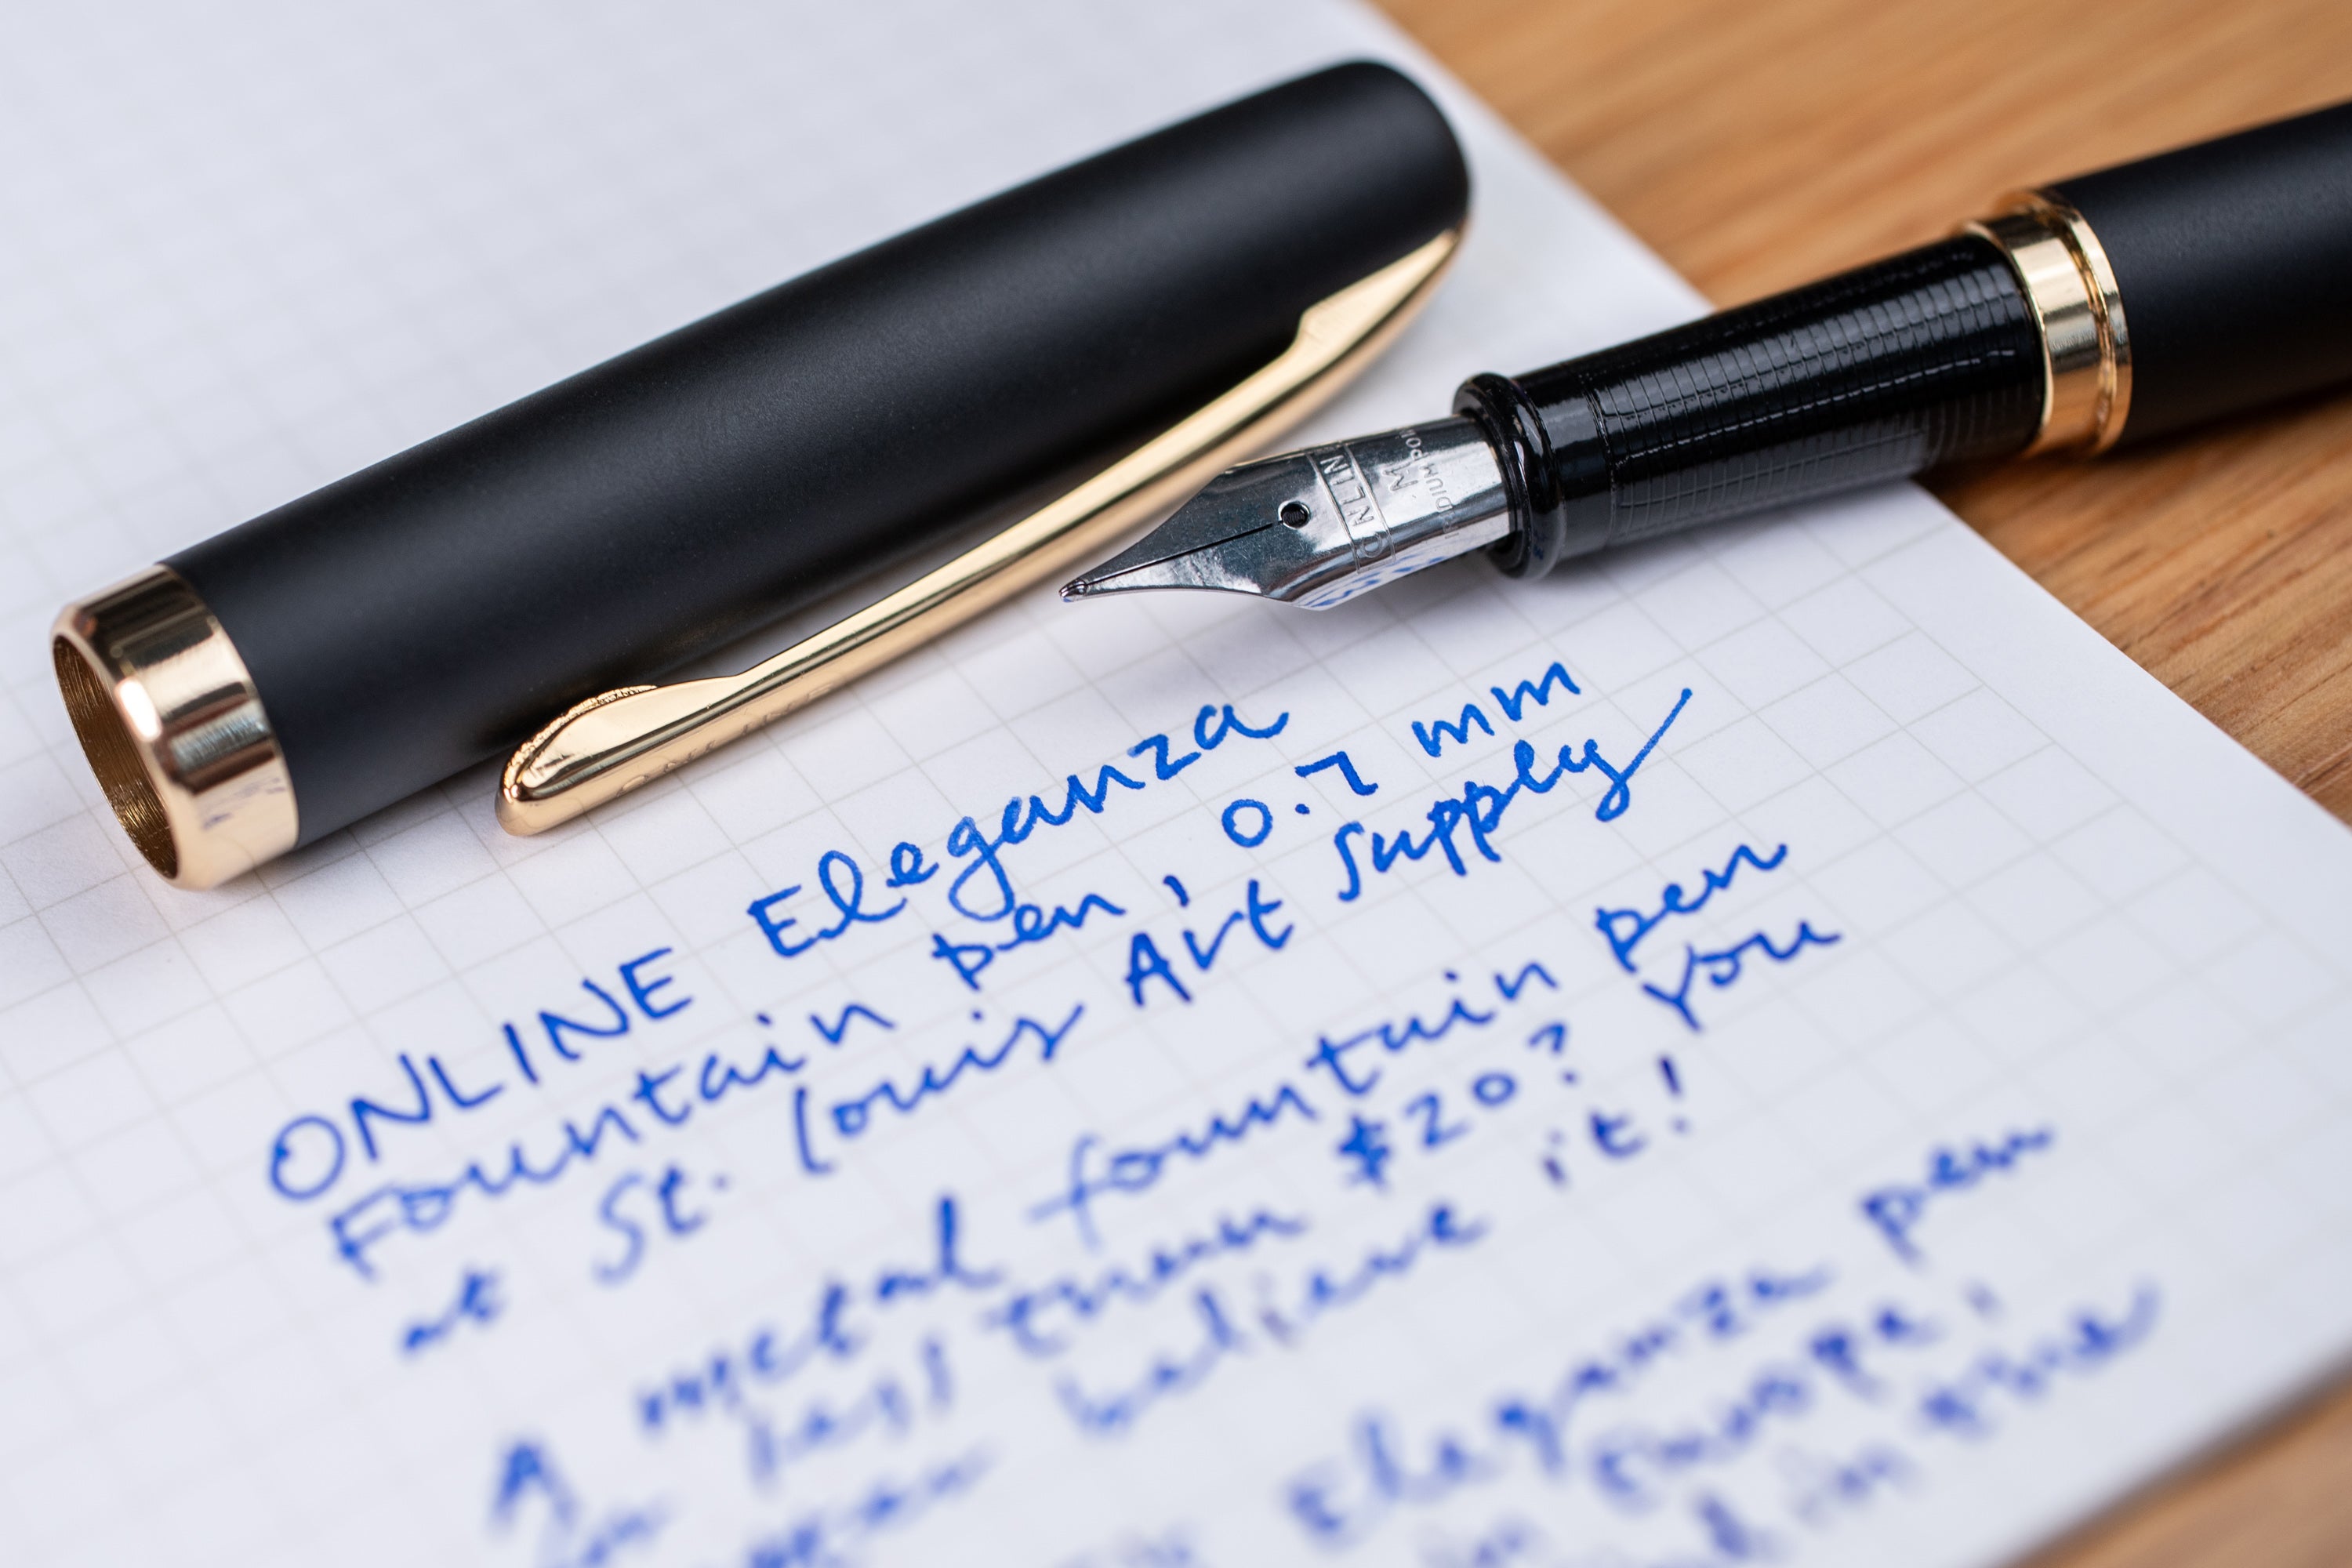 ONLINE
M
ONLINE
ONLINE Eleganza
Fountain pen, 0.7 mm
at St. Louis Art Supply
A metal fountain pen
for less than $20? You
can believe it!
Eleganza pen
in Europe,